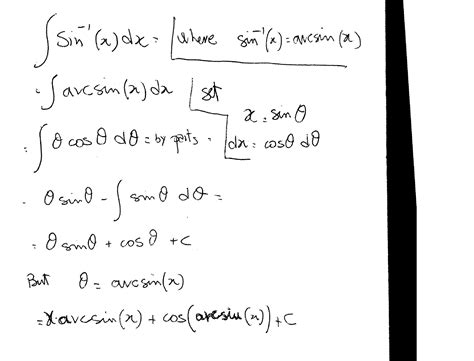 ∫ Sin⁻¹(x) dx = where sin⁻¹(x) = arcsin(x)
= ∫ arcsin(x) dx set
x = sin θ
= ∫ θ cos θ dθ = by parts = dx = cos θ dθ
= θ sin θ - ∫ sin θ dθ =
= θ sin θ + cos θ + C
But θ = arcsin(x)
= x·arcsin(x) + cos(arcsin(x)) + C